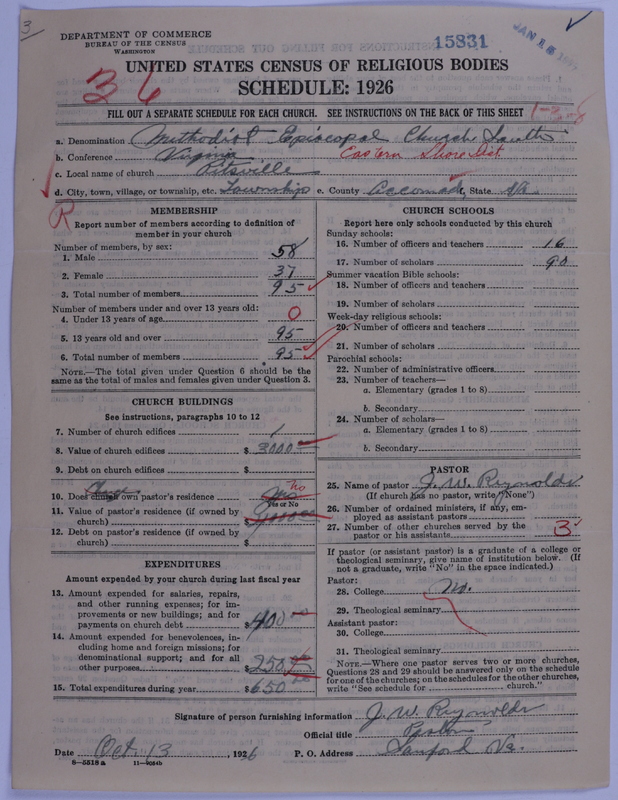 3
DEPARTMENT OF COMMERCE
BUREAU OF THE CENSUS
WASHINGTON
15831
JAN 18
UNITED STATES CENSUS OF RELIGIOUS BODIES
SCHEDULE: 1926
36
FILL OUT A SEPARATE SCHEDULE FOR EACH CHURCH. SEE INSTRUCTIONS ON THE BACK OF THIS SHEET
a. Denomination Methodist Episcopal Church South
b. Conference Virginia Eastern Shore Dist.
c. Local name of church Pitsville
d. City, town, village, or township, etc. Township e. County Accomack, State Va.
R
MEMBERSHIP
Report number of members according to definition of member in your church
Number of members, by sex:
1. Male 58
2. Female 37
3. Total number of members 95
Number of members under and over 13 years old:
4. Under 13 years of age 0
5. 13 years old and over 95
6. Total number of members 95
NOTE.—The total given under Question 6 should be the same as the total of males and females given under Question 3.
CHURCH BUILDINGS
See instructions, paragraphs 10 to 12
7. Number of church edifices 1
8. Value of church edifices $ 3000
9. Debt on church edifices $
10. Does church own pastor's residence no
Charge
Yes or No
11. Value of pastor's residence (if owned by church) $
12. Debt on pastor's residence (if owned by church) $
EXPENDITURES
Amount expended by your church during last fiscal year
13. Amount expended for salaries, repairs, and other running expenses; for improvements or new buildings; and for payments on church debt $ 400
14. Amount expended for benevolences, including home and foreign missions; for denominational support; and for all other purposes $ 250
15. Total expenditures during year $ 650
CHURCH SCHOOLS
Report here only schools conducted by this church
Sunday schools:
16. Number of officers and teachers 16
17. Number of scholars 90
Summer vacation Bible schools:
18. Number of officers and teachers
19. Number of scholars
Week-day religious schools:
20. Number of officers and teachers
21. Number of scholars
Parochial schools:
22. Number of administrative officers
23. Number of teachers—
a. Elementary (grades 1 to 8)
b. Secondary
24. Number of scholars—
a. Elementary (grades 1 to 8)
b. Secondary
PASTOR
25. Name of pastor J. W. Reynolds
(If church has no pastor, write "None")
26. Number of ordained ministers, if any, employed as assistant pastors
27. Number of other churches served by the pastor or his assistants 3
If pastor (or assistant pastor) is a graduate of a college or theological seminary, give name of institution below. (If not a graduate, write "No" in the space indicated.)
Pastor:
28. College No.
29. Theological seminary
Assistant pastor:
30. College
31. Theological seminary
NOTE.—Where one pastor serves two or more churches, Questions 28 and 29 should be answered only on the schedule for one of the churches; on the schedules for the other churches, write "See schedule for ........ church."
Signature of person furnishing information J. W. Reynolds
Official title Pastor
Date Oct. 13, 1926 P. O. Address Sanford Va.
8—5518a 11—9064b